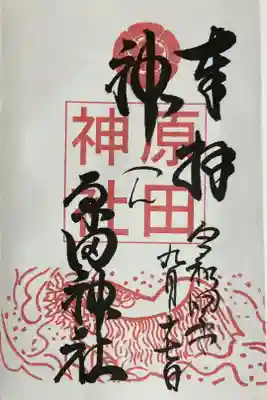 奉拝
令和四年
九月十七日
神
原田神社
原田神社